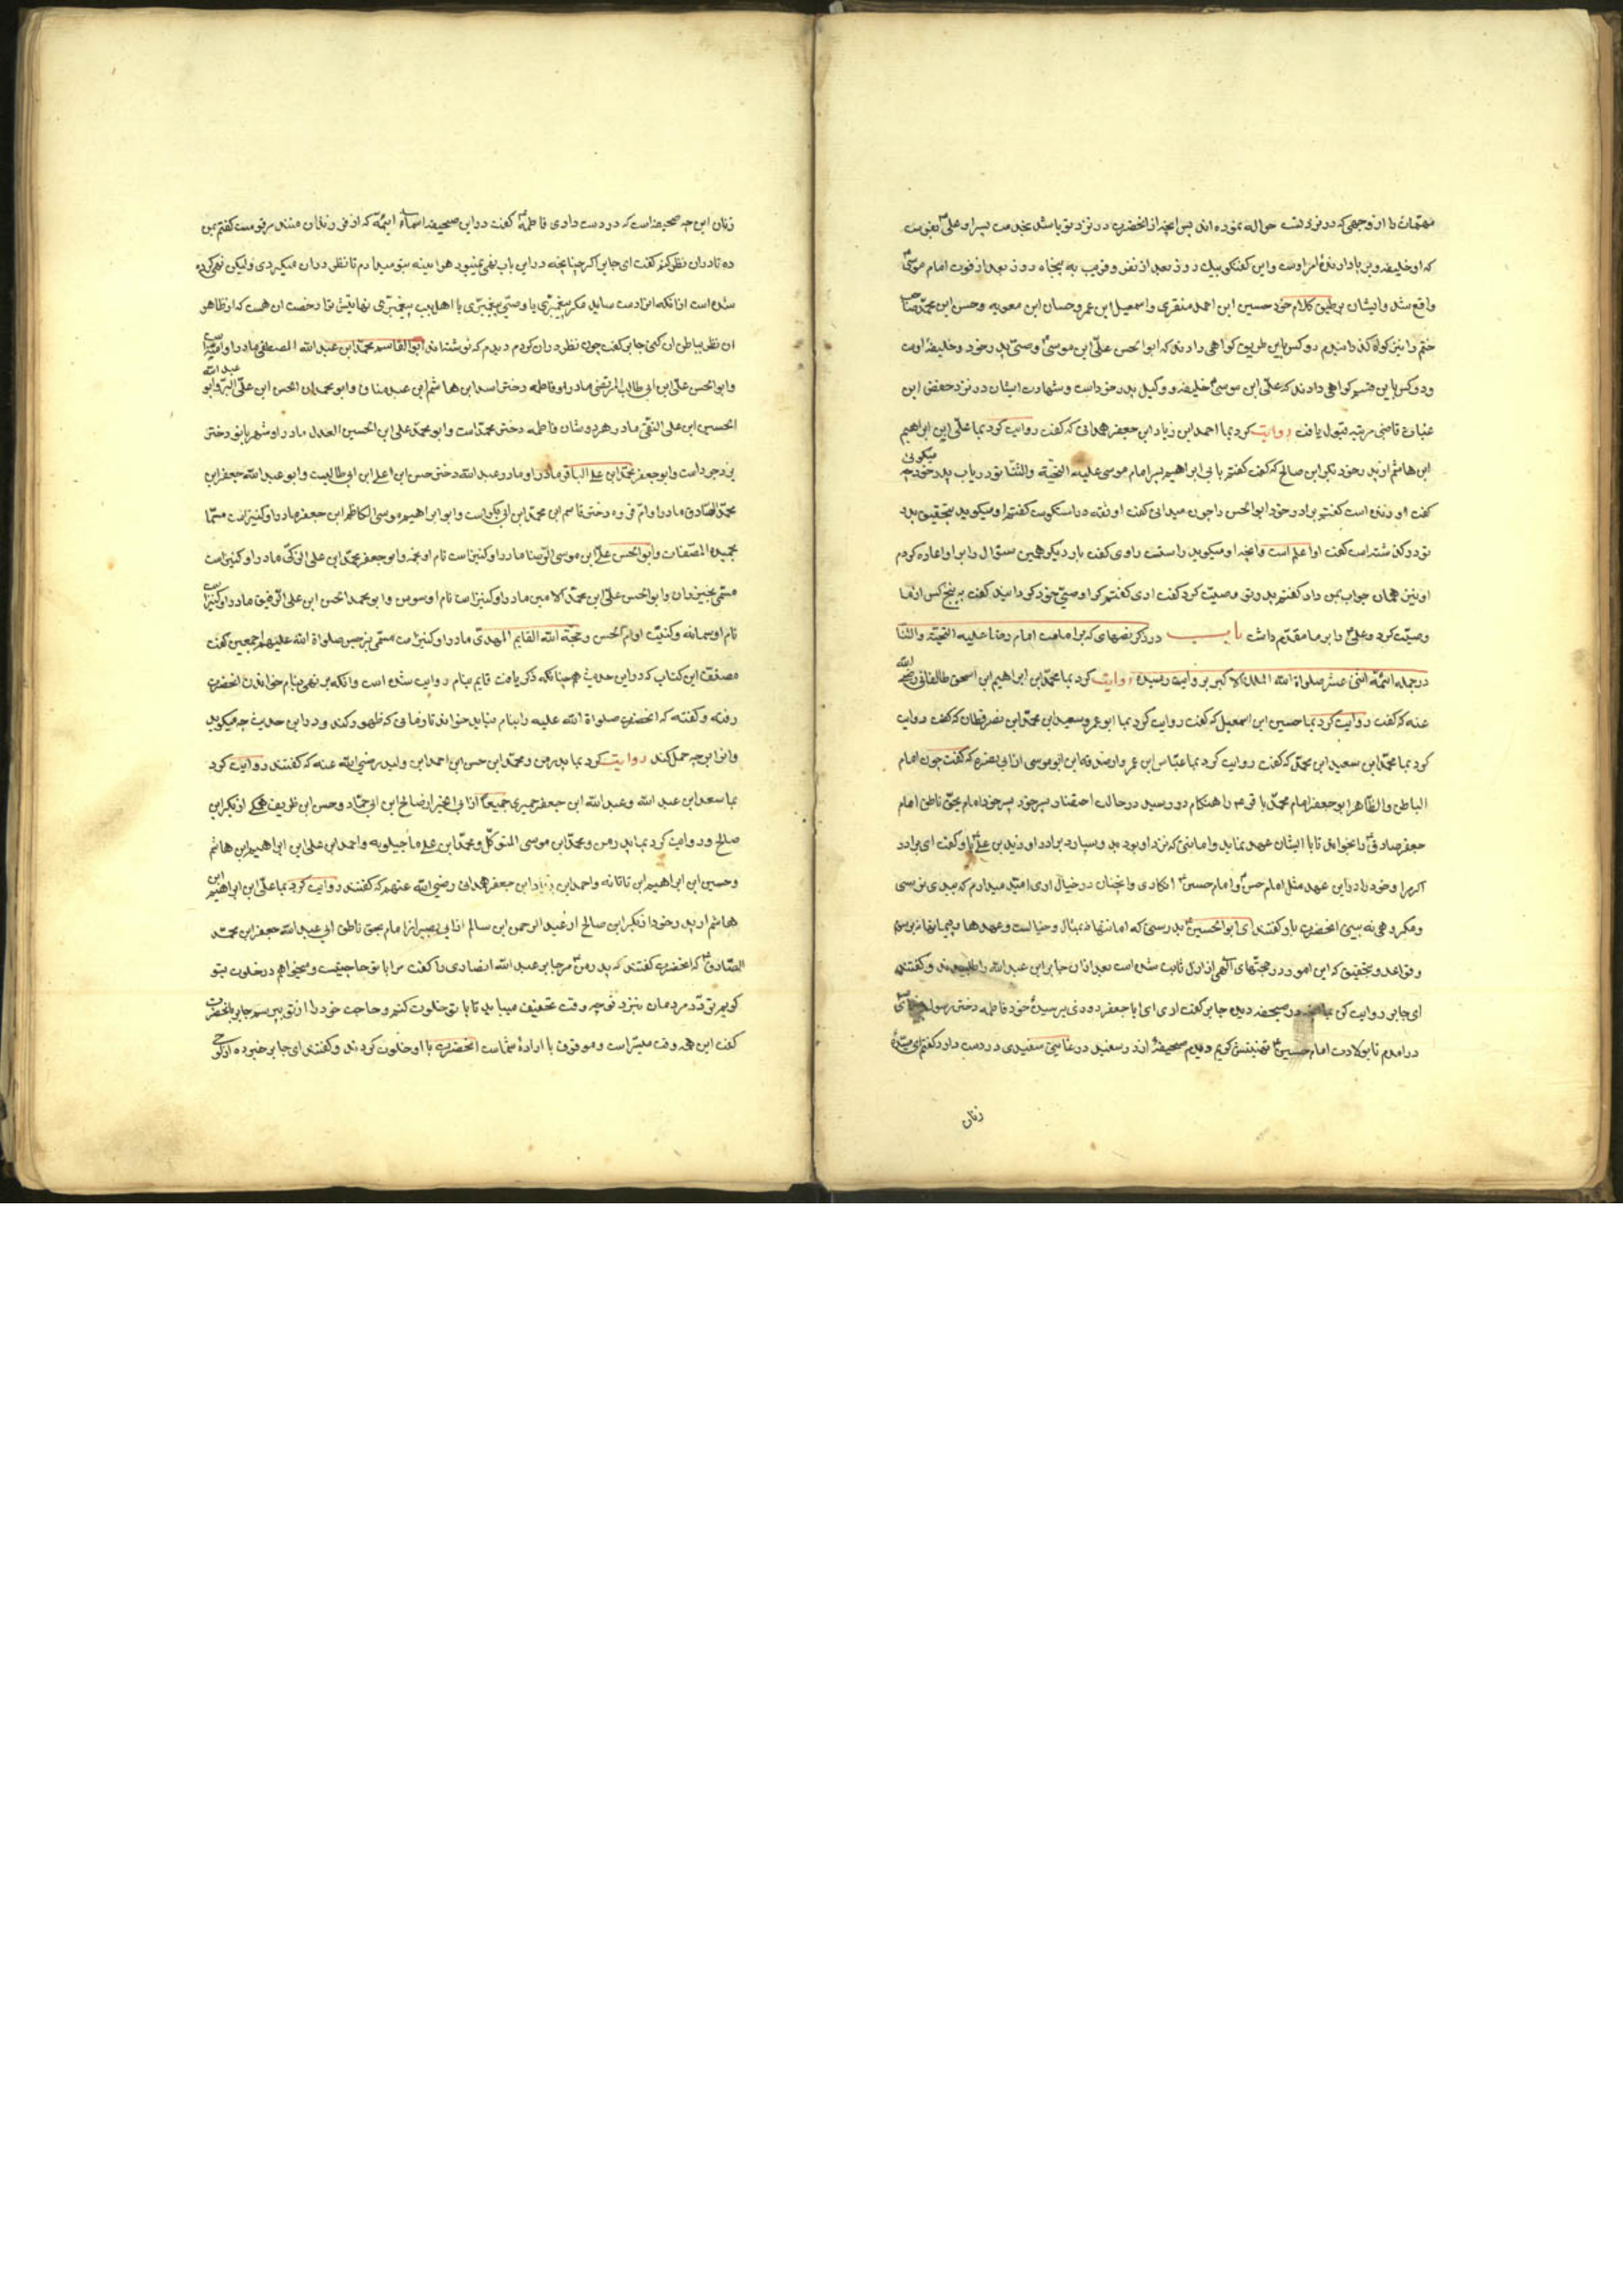 مهمات را از وجهی که در نزد تست حواله نموده اند پس آنچه از انحضرت در نزد تو باشد بخدمت پسر او علی بفرست
که او خلیفه و بر پا دارنده امر اوست و این گفتگو بیک روز بعد از نفر و قریب به پنجاه روز بعد از فوت امام موسی
واقع شد و ایشان بر طبق کلام خود حسین ابن احمد منقری و اسمعیل ابن عمر و حسان ابن معویه و حسن ابن محمد صاحب
ختم را نیز گواه گذرانیدم دو کس باین طریق گواهی دادند که ابو الحسن علی ابن موسی وصی پدر خود و خلیفه اوست
و دو کس باین قسم گواهی دادند که علی ابن موسی خلیفه و وکیل پدر خود است و شهادت ایشان در نزد حفص ابن
غیاث قاضی مرتبه قبول یافت روایت کرد بما احمد ابن زیاد ابن جعفر همدانی که گفت روایت کرد بما علی ابن ابراهیم
ابن هاشم از پدر خود از بکر ابن صالح که گفت گفتم با ابراهیم پسر امام موسی علیه التحیة والثنا تو در باب پدر خود چه میگوئی
گفت او زنده است گفتم برادر خود ابو الحسن را چون میدانی گفت او ثقه و راستگوست گفتم او میگوید بتحقیق پدر
تو در گذشته است گفت او اعلم است بآنچه او میگوید راست راوی گفت بار دیگر همین سئوال را بر او اعاده کردم
او نیز همان جواب بمن داد گفتم پدر تو وصیت کرد گفت اری گفتم کرا وصی خود گردانید گفت به پنج کس از ما
وصیت کرد و علی را بر ما مقدم داشت باب در ذکر نصهای که بر امامت امام رضا علیه التحیة والثنا
در جمله ائمه اثنی عشر صلواة الله الملک الاکبر بروایت رسیده روایت کرد بما محمد ابن ابراهیم ابن اسحق طالقانی رضی الله
عنه که گفت روایت کرد بما حسین ابن اسمعیل که گفت روایت کرد بما ابو عمرو سعید ابن محمد ابن نصر قطان که گفت روایت
کرد بما محمد ابن سعید ابن محمد که گفت روایت کرد بما عباس ابن عمر و از صدقه ابن ابو موسی از ابی نضره که گفت چون امام
الباطن والظاهر ابو جعفر امام محمد باقر را هنگام در رسید در حالت احتضار پسر خود امام بحق ناطق امام
جعفر صادق را بخواند تا با ایشان عهد نماید و امانتی که نزد او بود بدو سپارد برادر او زید بن علی باو گفت ای برادر
اگر مرا و خود را در این عهد مثل امام حسن و امام حسین انگاری و آنچنان در خیال اری امید میدارم که ببدی نرسی
و مکروهی نه بینی انحضرت باو گفتند ای ابو الحسین بدرستی که امانتها نه بمثال و خیالست و عهدها و پیمانها نه برسم
و قواعد و بتحقیق که این امور در حجتهای الهی از ازل ثابت شده است بعد ازان جابر ابن عبد الله را طلبیدند و گفتند
ای جابر روایت کن بما آنچه در صحیفه دیده جابر گفت اری ای ابا جعفر روزی بر سیده خود فاطمه دختر رسول خدای
در امدم تا بولادت امام حسین تهنیتش گویم دیدم صحیفه از در سفید در غایت سفیدی در دست دارد گفتم ای سیده
زنان
زنان این چه صحیفه است که در دست داری فاطمه گفت در این صحیفه اسماء ائمه که از فرزندان منند مرقومست گفتم بمن
ده تا دران نظر کنم گفت ای جابر اگر چنانچه در این باب نهی نمیبود هر اینه بتو میدادم تا نظر دران میکردی ولیکن نهی کرده
شده است از انکه انرا دست ساید مگر پیغمبری یا وصی پیغمبری یا اهل بیت پیغمبری نهایتش ترا رخصت ان هست که از ظاهر
ان نظر بباطن ان کنی جابر گفت چون نظر دران کردم دیدم که نوشته اند ابو القاسم محمد ابن عبد الله المصطفی مادر او امنه است
وابو الحسن علی ابن ابی طالب المرتضی مادر او فاطمه دختر اسد ابن هاشم ابن عبد مناف وابو محمد ابن الحسن ابن علی البر وابو عبد الله
الحسین ابن علی التقی مادر هر دوشان فاطمه دختر محمد است وابو محمد علی ابن الحسین العدل مادر او شهر بانو دختر
یزدجرد است وابو جعفر محمد ابن علی الباقر مادر او مادر عبد الله دختر حسن ابن علی ابن ابی طالبست وابو عبد الله جعفر ابن
محمد الصادق مادر او ام فروه دختر قاسم ابن محمد ابن ابی بکر است وابو ابراهیم موسی الکاظم ابن جعفر مادر او کنیز است مسما
بحمیده المصفات وابو الحسن علی ابن موسی الرضا مادر او کنیز است نام او نجمه وابو جعفر محمد ابن علی الزکی مادر او کنیز است
مسمی بخیزران وابو الحسن علی ابن محمد الامین مادر او کنیز است نام او سوسن وابو محمد الحسن ابن علی الرفیق مادر او کنیز است
نام او سمانه وکنیت او ام الحسن وحجة الله القایم المهدی مادر او کنیز است مسمی بنرجس صلواة الله علیهم اجمعین گفت
مصنف این کتاب که در این حدیث همچنانکه ذکر یافت قایم بنام روایت شده است وانکه بر نهی بنام خواندن انحضرت
رفته و گفته که انحضرت صلواة الله علیه را بنام نباید خواند تا زمانی که ظهور کند ودر این حدیث چه میگوید
وانرا بر چه حمل کند روایت کرد بما پدر من ومحمد ابن حسن ابن احمد ابن ولید رضی الله عنه که گفتند روایت کرد
بما سعد ابن عبد الله وعبد الله ابن جعفر حمیری جمیعا از ابی الخیر از صالح ابن ابی حماد وحسن ابن ظریف همگی از بکر ابن
صالح وروایت کرد بما پدر من ومحمد ابن موسی المتوکل ومحمد ابن علی ماجیلویه واحمد ابن علی ابن ابراهیم ابن هاشم
وحسین ابن ابراهیم ابن ناتانه واحمد ابن زیاد ابن جعفر همدانی رضی الله عنهم که گفتند روایت کرد بما علی ابن ابراهیم ابن
هاشم از پدر خود از بکر ابن صالح از عبد الرحمن ابن سالم از ابی بصیر از امام بحق ناطق ابی عبد الله جعفر ابن محمد
الصادق که انحضرت گفتند که پدر من مر جابر عبد الله انصاری را گفت مرا با تو حاجتیست ومیخواهم در خلوت بتو
گویم تردد مردمان بنزد تو چه وقت تخفیف مییابد تا با تو خلوت کنم وحاجت خود را از تو بپرسم جابر بانحضرت
گفت این همه وقت میسر است وموقوف با اراده شماست انحضرت با او خلوت کردند و گفتند ای جابر خبر ده از لوحی